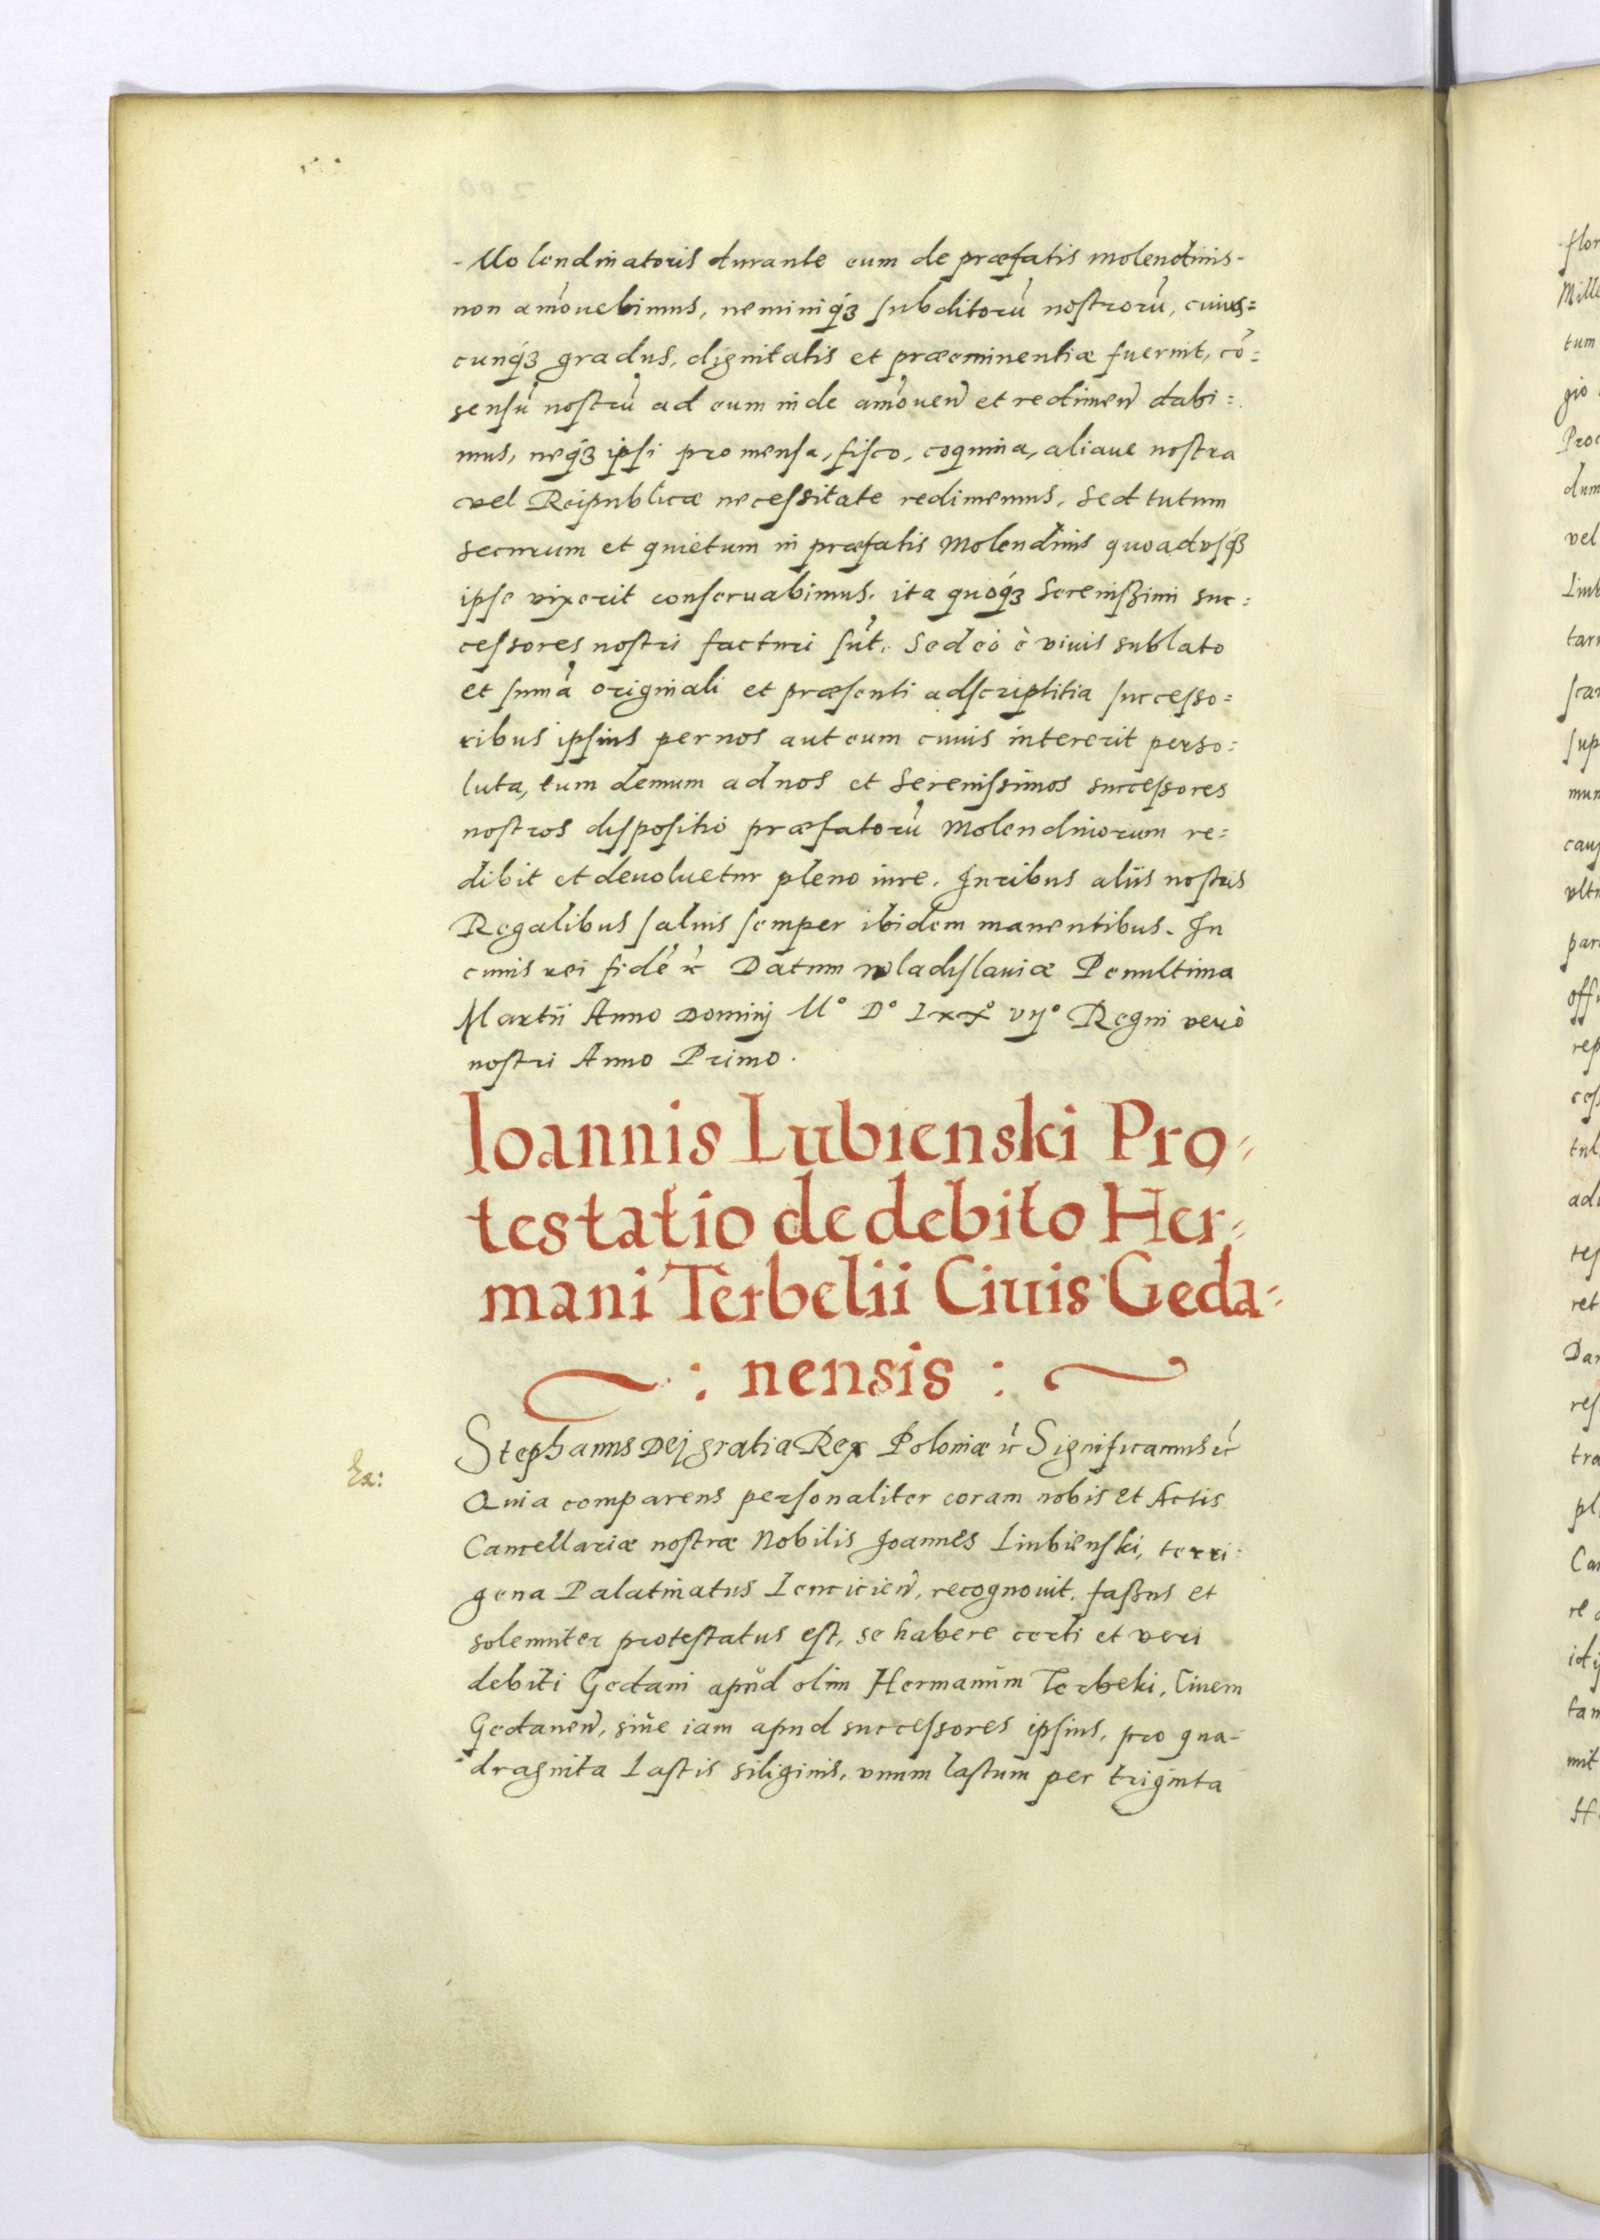 Molendinatoris durante eum de præfatis molendinis
non amōuebimus, neminiq́ꝫ subditorū nostrorū, cuius=
cunq́ꝫ gradus, dignitatis et præeminentiæ fuerint, cō=
sensū nostrū ad eum inde amōuen̄ et redimen̄ dabi=
mus, neq́ꝫ ipsi pro mensa, fisco, coquina, aliaue nostra
vel Reipublicæ necessitate redimemus, sed tutum
securum et quietum in præfatis Molendinis quoadusq́ꝫ
ipse vixerit conseruabimus. ita quoq́ꝫ Serenißimi suc=
cessores nostri facturi sūt. Sed eò è viuis sublato
et sumā originali et præsenti adscriptitia successo=
ribus ipsius per nos aut eum cuius intererit perso=
luta, tum demum ad nos et Serenissimos successores
nostros dispositio præfatorū Molendinorum re=
dibit et deuoluetur pleno iure. Iuribus aliis nostris
Regalibus saluis semper ibidem manentibus. In
cuius rei fidē ꝛc̄ Datum Wladislauiæ Penultima
Martii Anno Dominj M° D° Lxx° vij° Regni verò
nostri Anno Primo.
Ioannis Lubienski Pro=
testatio de debito Her=
mani Terbelii Ciuis Geda=
: nensis :
Stephanus Dej gratia Rex Poloniæ ꝛc̄ Significamus ꝛc̄
Ex:
Quia comparens personaliter coram nobis et Actis
Cancellariæ nostræ Nobilis Joannes Liubienski, terri=
gena Palatinatus Lencicien̄, recognouit. faßus et
solemniter protestatus est, se habere certi et veri
debiti Gedani apud olim Hermanum Terbeki, Ciuem
Gedanen̄, siue iam apud successores ipsius, pro qua=
draginta Lastis siliginis, vnum lastum per triginta
flor
Mille
tum
gio
Proc
dum
vel